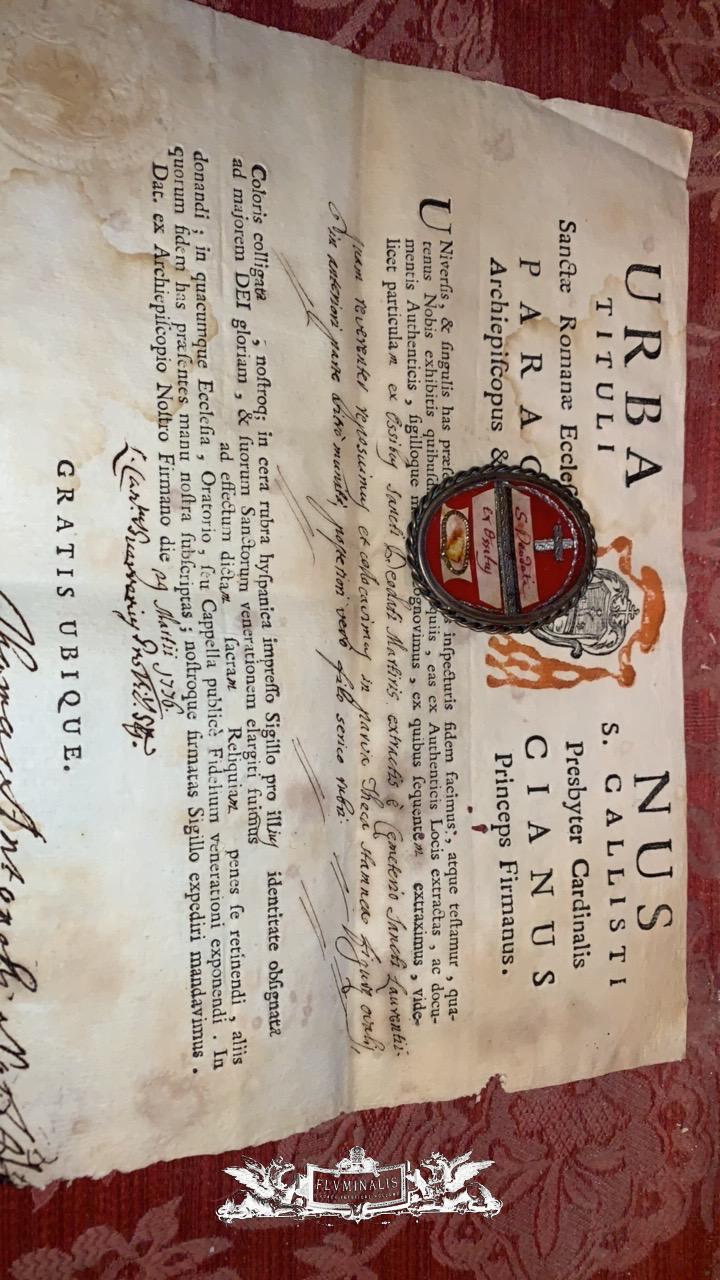 URBA NUS
TITULI S. CALLISTI
Sanctæ Romanæ Eccleſ Presbyter Cardinalis
PARAC CIANUS
Archiepiſcopus & Princeps Firmanus.
UNiverſis, & ſingulis has præſe s inſpecturis fidem facimus, atque teſtamur, qua-
tenus Nobis exhibitis quibuſd quiis, eas ex Authenticis Locis extractas, ac docu-
mentis Authenticis, ſigilloque m ognovimus, ex quibus ſequentem extraximus, vide-
licet particulam ex Ossibus Sancti Deodati Martiris extractis è Cemeterio Sancti Laurentii
quam reverenter reposuimus et collocavimus in parva Theca stamnea figura ovalis,
in anteriori parte vitro munita, posteriori vero filo serico rubri
Coloris colligata, noſtroq; in cera rubra hyſpanica impreſſo Sigillo pro illius identitate obſignata
ad majorem DEI gloriam, & ſuorum Sanctorum venerationem elargiti fuimus
ad effectum dictam ſacram Reliquiam penes ſe retinendi, aliis
donandi; in quacumque Eccleſia, Oratorio, ſeu Cappella publicè Fidelium venerationi exponendi. In
quorum fidem has præſentes manu noſtra ſubſcriptas; noſtroque firmatas Sigillo expediri mandavimus.
Dat. ex Archiepiſcopio Noſtro Firmano die 29 Martii 1776.
GRATIS UBIQUE.
S. Deodati
Ex Ossibus
FLVMINALIS